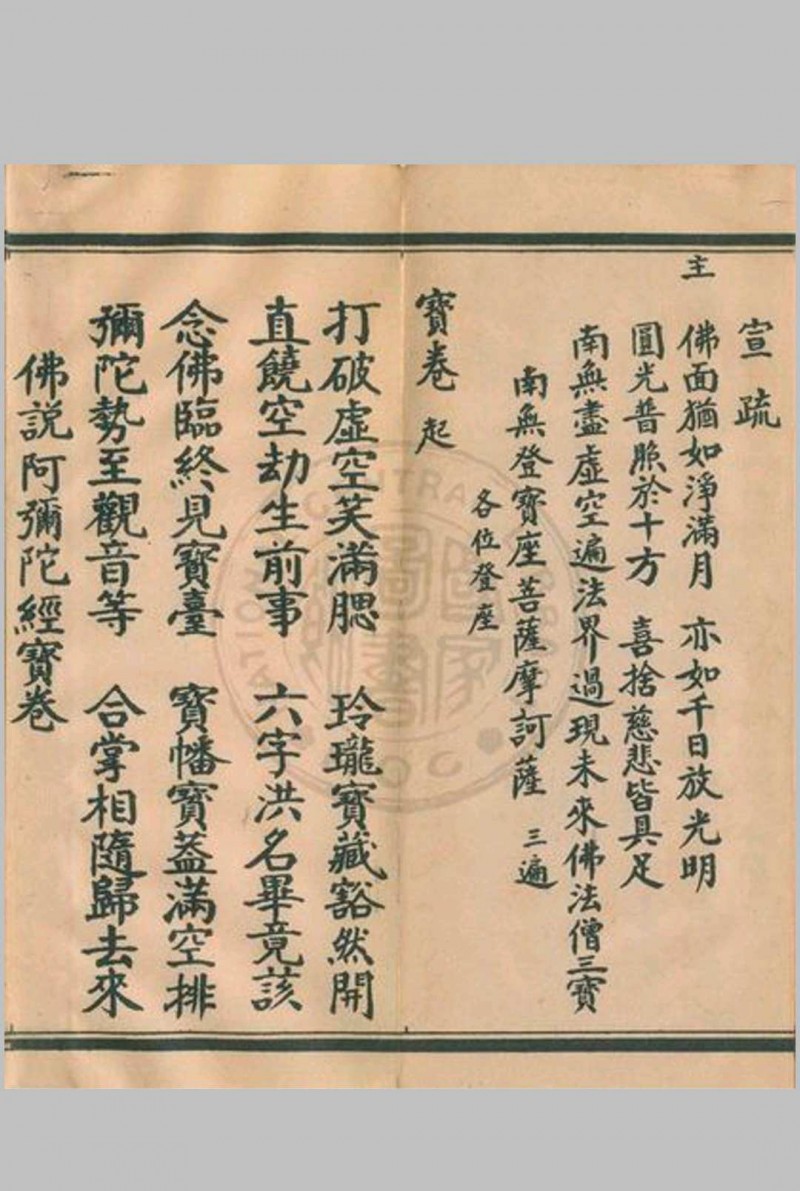 宣疏
主 佛面猶如淨滿月 亦如千日放光明
圓光普照於十方 喜捨慈悲皆具足
南無盡虛空遍法界過現未來佛法僧三寶
南無登寶座菩薩摩訶薩 三遍
各位登座
寶卷 起
打破虛空笑滿腮 玲瓏寶藏豁然開
直饒空劫生前事 六字洪名畢竟該
念佛臨終見寶臺 寶幡寶蓋滿空排
彌陀勢至觀音等 合掌相隨歸去來
佛說阿彌陀經寶卷